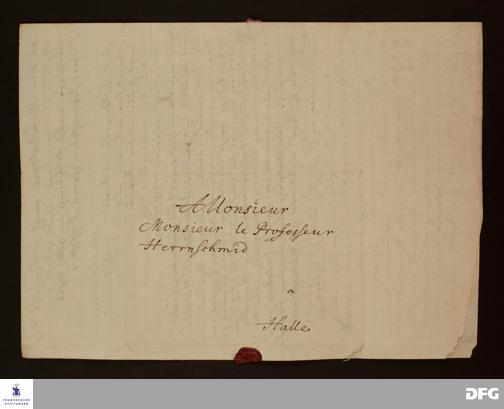 A Monsieur
Monsieur le Professeur
Herrnschmid
a
Halle
FRANCKESCHE
STIFTUNGEN
DFG